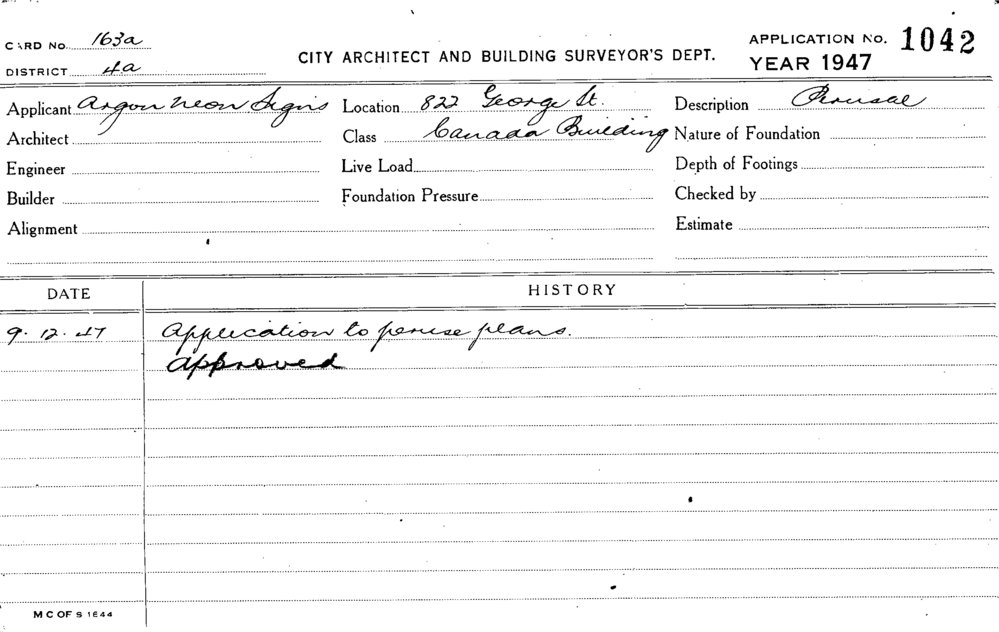 CARD No. 163a
DISTRICT 4a
CITY ARCHITECT AND BUILDING SURVEYOR'S DEPT.
APPLICATION No. 1042
YEAR 1947
Applicant Argon Neon Signs Location 822 George St. Description Perusal
Architect Class Canada Building Nature of Foundation
Engineer Live Load Depth of Footings
Builder Foundation Pressure Checked by
Alignment Estimate
DATE HISTORY
9.12.47 Application to peruse plans.
Approved
M C OF S 1644